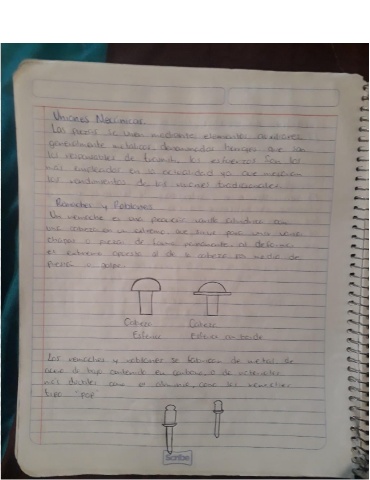 Uniones Mecánicas.
Las piezas se unen mediante elementos auxiliares,
generalmente metalicos, denominados herrajes que son
los responsables de trasmitir los esfuerzos. Son los
mas empleados en la actualidad ya que mejoran
los rendimientos de las uniones tradicionales.
Remaches y Roblones
Un remache es una pequeña varilla cilindrica con
una cabeza en un extremo, que sirve para unir varias
chapas o piezas de forma permanente, al deformar
el extremo opuesto al de la cabeza por medio de
presión o golpe.
Cabeza Cabeza
Esferica Esferica con borde
Los remaches y roblones se fabrican de metal, de
acero de bajo contenido en carbono, o de materiales
mas ductiles como el aluminio, como los remaches
tipo "POP"
Scribe